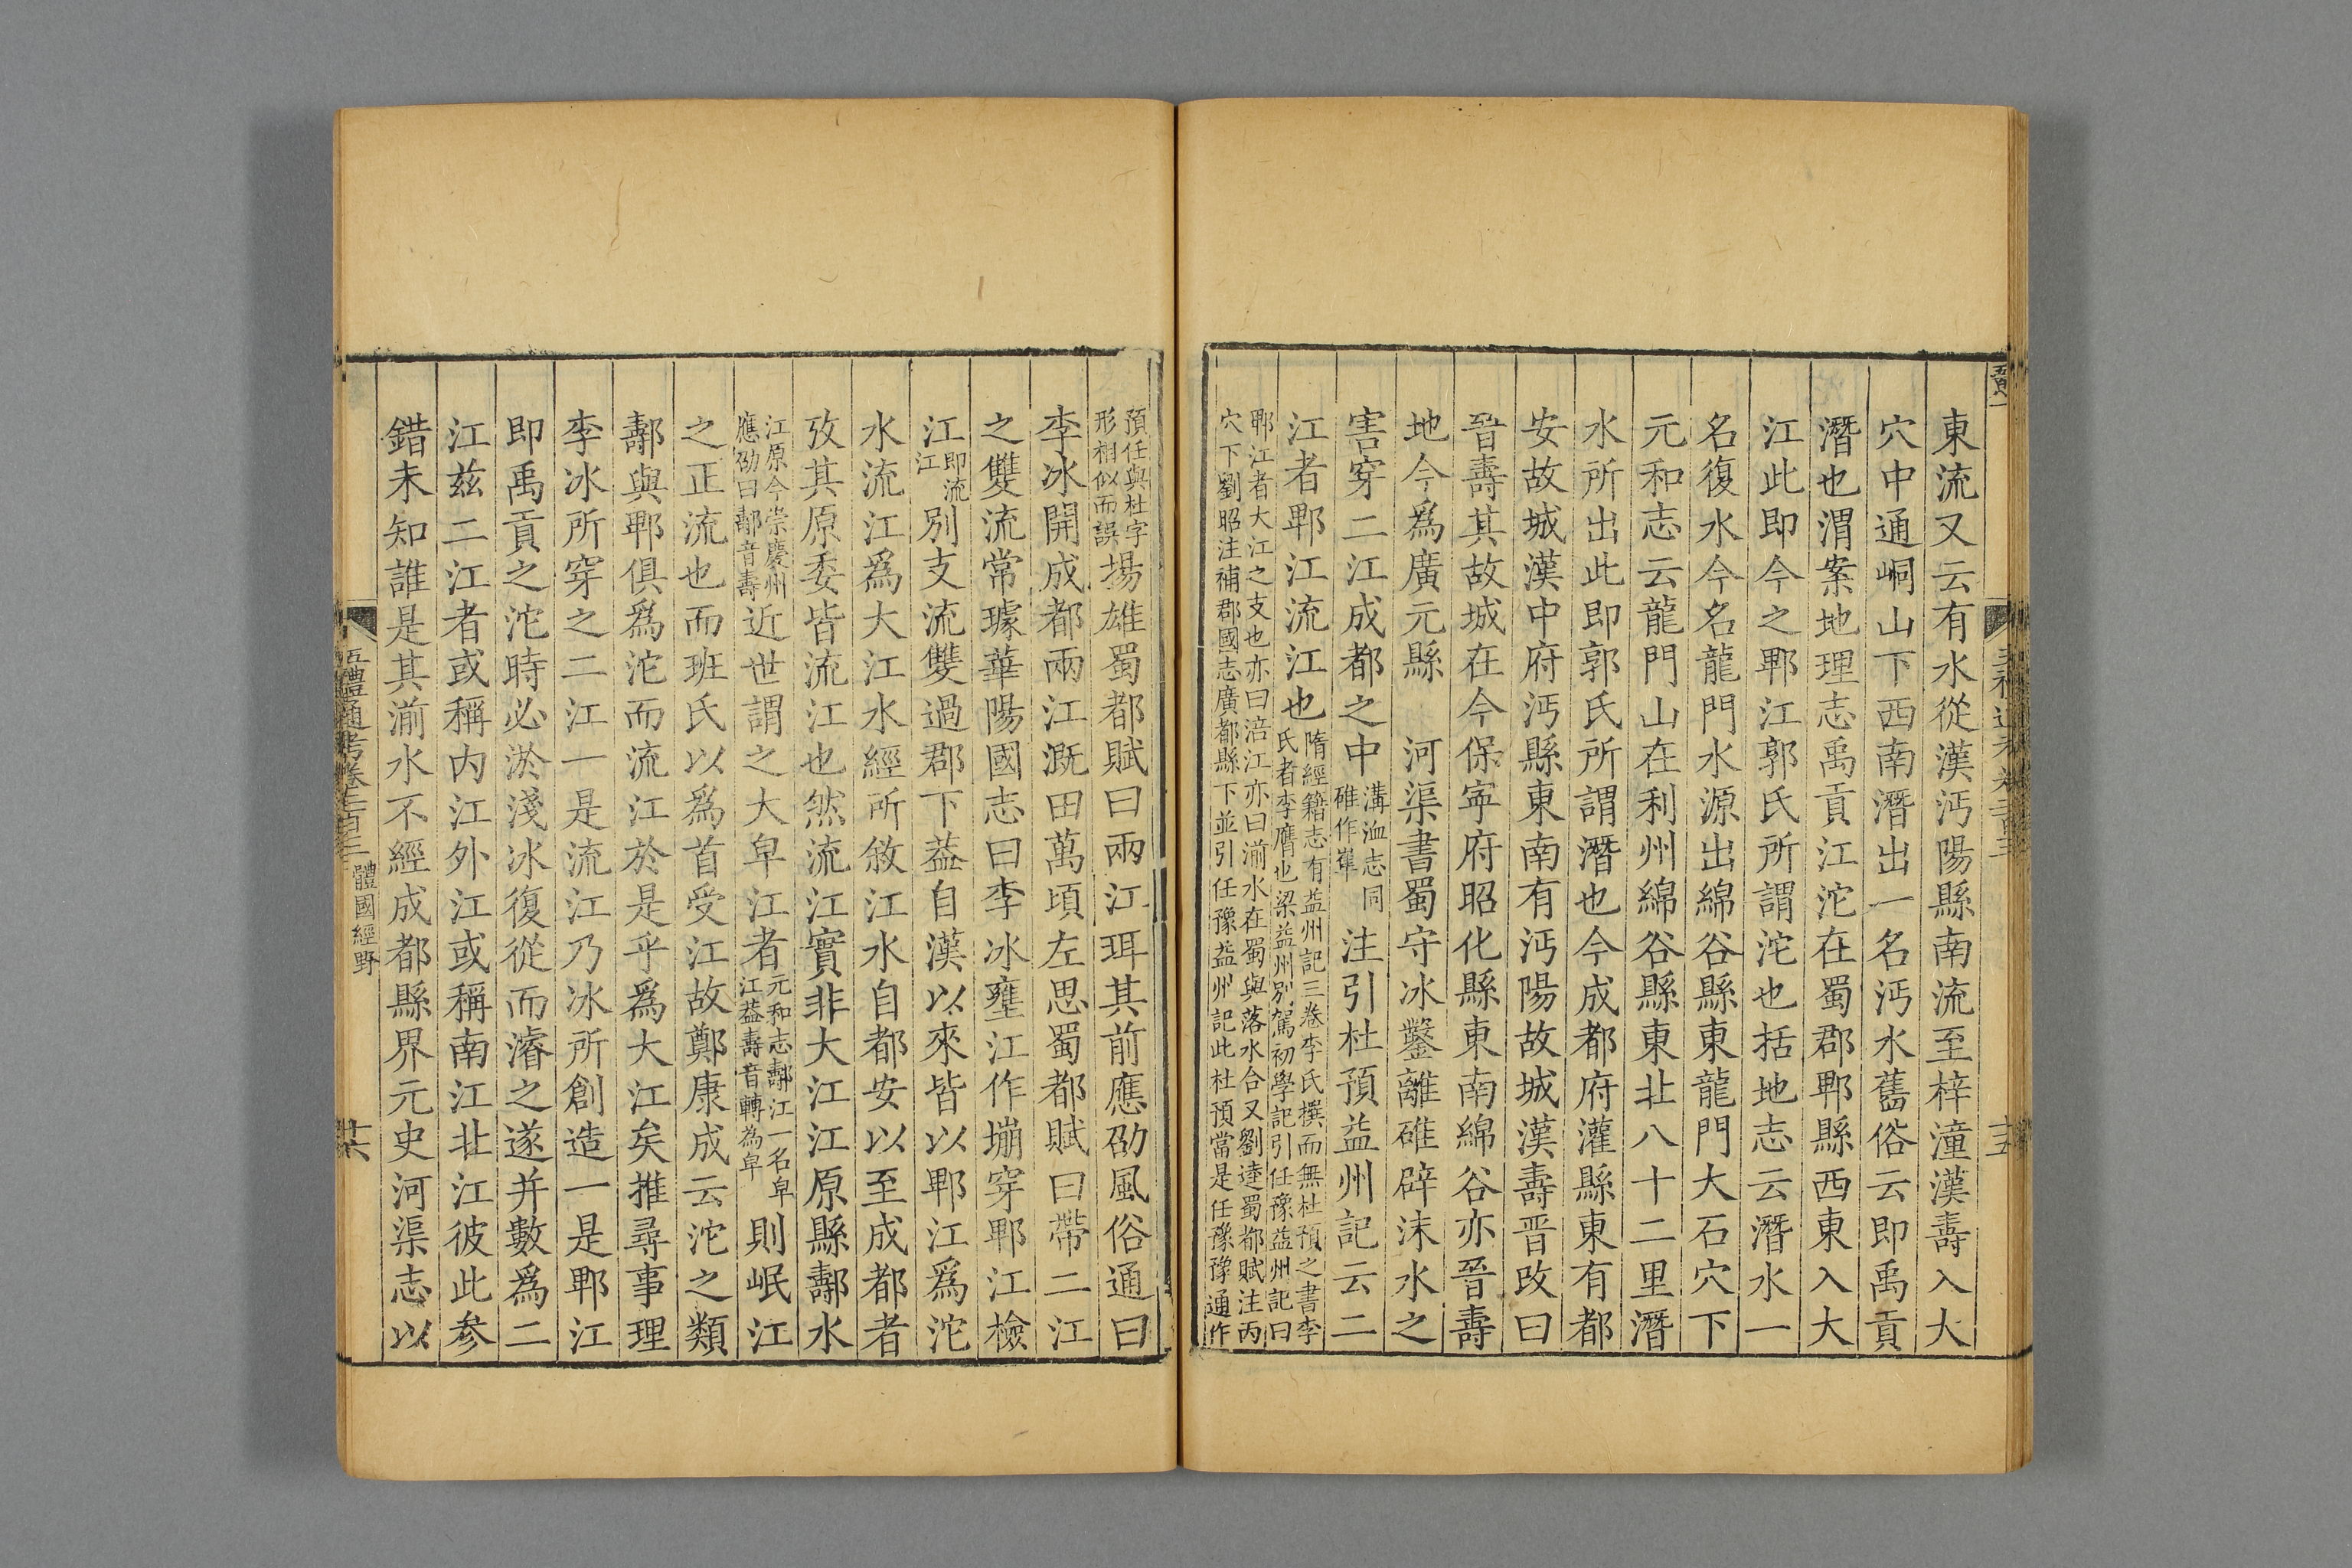 東流又云有水從漢沔陽縣南流至梓潼漢壽入大
穴中通峒山下西南潛出一名沔水舊俗云即禹貢
潛也渭案地理志禹貢江沱在蜀郡郫縣西東入大
江此即今之郫江郭氏所謂沱也括地志云潛水一
名復水今名龍門水源出綿谷縣東龍門大石穴下
元和志云龍門山在利州綿谷縣東北八十二里潛
水所出此即郭氏所謂潛也今成都府灌縣東有都
安故城漢中府沔縣東南有沔陽故城漢壽晉改曰
晉壽其故城在今保寧府昭化縣東南綿谷亦晉壽
地今爲廣元縣 河渠書蜀守冰鑿離碓辟沫水之
害穿二江成都之中
溝洫志同
碓作㠑
注引杜預益州記云二
江者郫江流江也
隋經籍志有益州記三卷李氏撰而無杜預之書李
氏者李膺也梁益州別駕初學記引任豫益州記曰
郫江者大江之支也亦曰涪江亦曰湔水在蜀與落水合又劉逵蜀都賦注丙
穴下劉昭注補郡國志廣都縣下並引任豫益州記此杜預當是任豫豫通作
預任與杜字
形相似而誤
揚雄蜀都賦曰兩江珥其前應劭風俗通曰
李冰開成都兩江溉田萬頃左思蜀都賦曰帶二江
之雙流常璩華陽國志曰李冰壅江作堋穿郫江檢
江
即流
江
別支流雙過郡下葢自漢以來皆以郫江爲沱
水流江爲大江水經所敘江水自都安以至成都者
攷其原委皆流江也然流江實非大江江原縣䣝水
江原今崇慶州
應劭曰䣝音壽
近世謂之大皁江者
元和志䣝江一名皁
江葢壽音轉為皁
則岷江
之正流也而班氏以爲首受江故鄭康成云沱之類
䣝與郫俱爲沱而流江於是乎爲大江矣推尋事理
李冰所穿之二江一是流江乃冰所創造一是郫江
即禹貢之沱時必淤淺冰復從而濬之遂并數爲二
江茲二江者或稱內江外江或稱南江北江彼此参
錯未知誰是其湔水不經成都縣界元史河渠志以
五禮通考卷二百三
體國經野
十六
十五